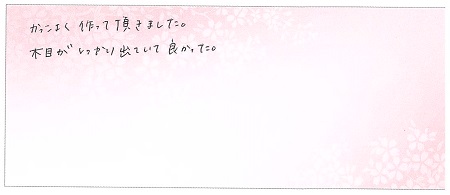 かっこよく 作って 頂きました。
木目が しっかり 出ていて 良かった。